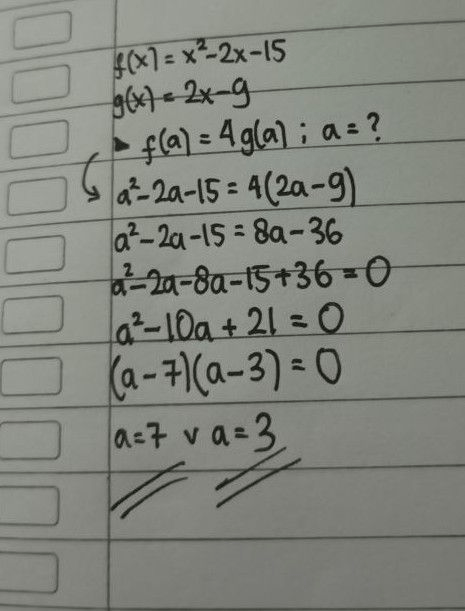 f(x) = x²-2x-15
g(x) = 2x-9
▸ f(a) = 4g(a) ; a = ?
a²-2a-15 = 4(2a-9)
a²-2a-15 = 8a-36
a²-2a-8a-15+36 = 0
a²-10a+21 = 0
(a-7)(a-3) = 0
a=7 v a=3